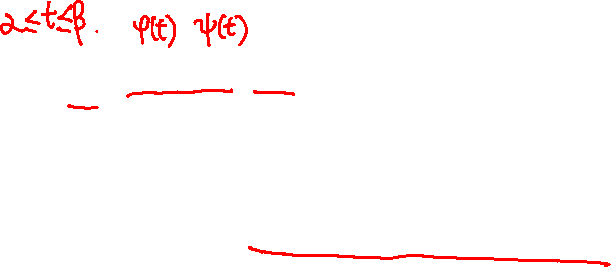 α≤t≤β. φ(t) ψ(t)